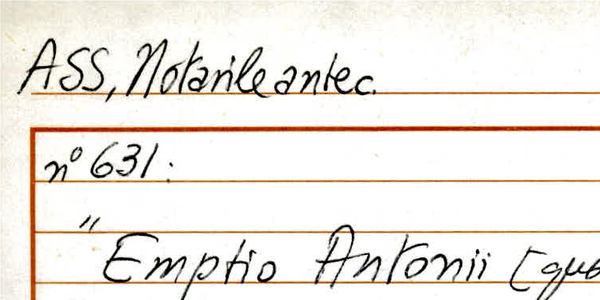 ASS, Notarile antec.
n° 631:
" Emptio Antonii [